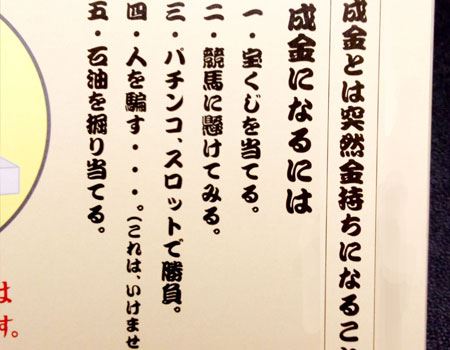 成金とは突然金持ちになるこ
成金になるには
一・宝くじを当てる。
二・競馬に懸けてみる。
三・パチンコ、スロットで勝負。
四・人を騙す・・・。(これは、いけませ
五・石油を掘り当てる。
は
す。